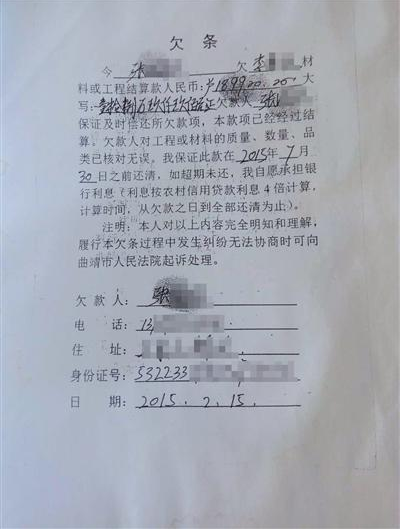 欠条
今 张 欠 李 材
料或工程结算款人民币: 大
写: 欠款人 张
保证及时偿还所欠款项,本款项已经经过结
算。欠款人对工程或材料的质量、数量、品
类已核对无误。我保证此款在2015年7月
30日之前还清,如超期未还,我自愿承担银
行利息(利息按农村信用贷款利息4倍计算,
计算时间,从欠款之日到全部还清为止)。
注明:本人对以上内容完全明知和理解,
履行本欠条过程中发生纠纷无法协商时可向
曲靖市人民法院起诉处理。
欠款人: 张
电话: 13
住址:
身份证号: 532233
日期: 2015.2.15.